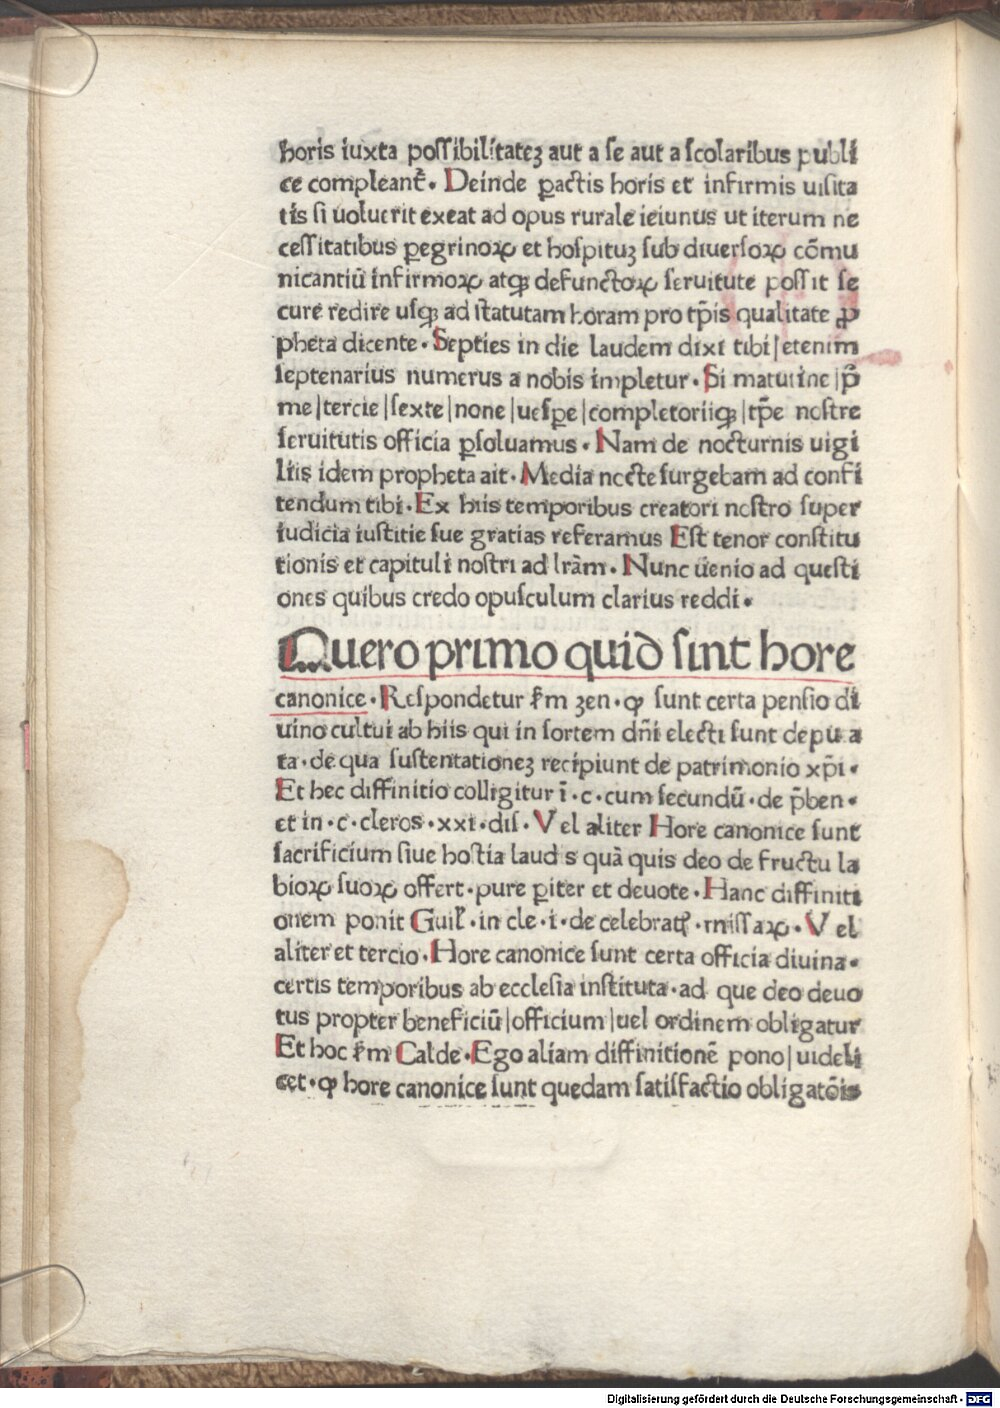 horis iuxta possibilitateꝫ aut a se aut a scolaribus publi
ce compleant̄. Deinde ꝑactis horis et infirmis uisita
tis si uoluerit exeat ad opus rurale ieiunus ut iterum ne
cessitatibus ꝑegrinoꝝ et hospituꝫ sub diuersoꝝ cōmu
nicantiū infirmoꝝ atqꝫ defunctoꝝ seruitute possit se
cure redire usqꝫ ad statutam horam pro tp̄is qualitate ꝓ
pheta dicente. Septies in die laudem dixi tibi|etenim
septenarius numerus a nobis impletur. Si matutine|p̄
me|tercie|sexte|none|uesꝑe|completoriiqꝫ|tp̄e nostre
seruitutis officia ꝑsoluamus. Nam de nocturnis uigi
liis idem propheta ait. Media nocte surgebam ad confi
tendum tibi. Ex hiis temporibus creatori nostro super
iudicia iustitie sue gratias referamus Est tenor constitu
tionis et capituli nostri ad lrām. Nunc uenio ad questi
ones quibus credo opusculum clarius reddi.
Quero primo quid sint hore
canonice. Respondetur ẜm ȝen. ꝙ sunt certa pensio di
uino cultui ab hiis qui in sortem dn̄i electi sunt deputa
ta. de qua sustentationeꝫ recipiunt de patrimonio xp̄i.
Et hec diffinitio colligitur ī. c. cum secundū. de p̄ben.
et in. c. cleros. xxi. dis. Vel aliter Hore canonice sunt
sacrificium siue hostia laud s quā quis deo de fructu la
bioꝝ suoꝝ offert. pure ꝑiter et deuote. Hanc diffiniti
onem ponit Guil̄. in cle. i. de celebratꝭ. missaꝝ. Vel
aliter et tercio. Hore canonice sunt certa officia diuina.
certis temporibus ab ecclesia instituta. ad que deo deuo
tus propter beneficiū|officium|uel ordinem obligatur
Et hoc ẜm Calde. Ego aliam diffinitionē pono|uideli
cet. ꝙ hore canonice sunt quedam satisfactio obligatōis
Digitalisierung gefördert durch die Deutsche Forschungsgemeinschaft - DFG